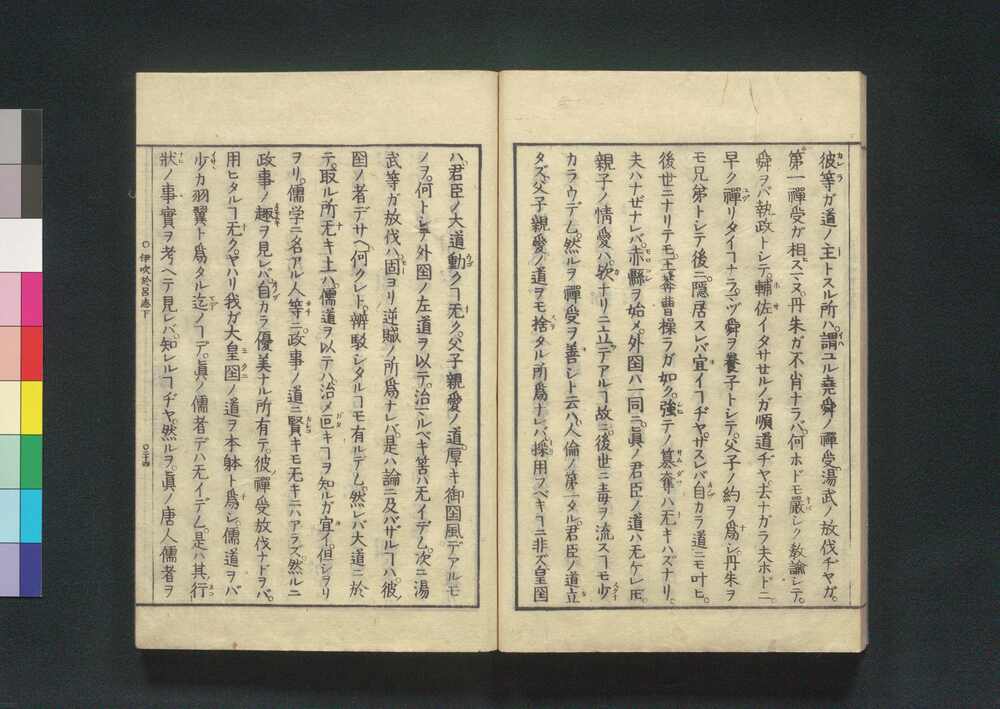 彼等ガ道ノ主トスル所ハ謂ユル堯舜ノ禪受湯武ノ放伐ヂヤガ。
第一禪受ガ相スミヌ。丹朱ガ不肖ナラバ。何ホドモ嚴シク教諭シテ。
舜ヲバ執政トシテ。輔佐イタサセルノガ順道ヂヤ。去ナガラ夫ホドニ。
早ク禪リタイコナラ。マヅ舜ヲ養子トシテ。父子ノ約ヲ爲シ。丹朱ヲ
モ兄弟トシテ後ニ。隱居スレバ宜イコヂヤ。サスレバ自カラ道ニモ叶ヒ。
後世ニナリテモ。王莽曹操ラガ如ク。強テノ簒奪ハ无キハズナリ。
夫ハナゼナレバ。赤縣ヲ始メ。外囶ハ一同ニ。眞ノ君臣ノ道ハ无ケレ𪜈。
親子ノ情愛ハ。欤ナリニ立デアルコ故ニ。後世ニ毒ヲ流スコモ少
カラウデム。然ルヲ禪受ヲ善シト云ハ。人倫ノ第一タル。君臣ノ道立
タズ。父子親愛ノ道ヲモ捨タル所爲ナレバ。採用フベキコニ非ズ。皇囶
ハ。君臣ノ大道動クコ无ク。父子親愛ノ道。厚キ御囶風デアルモ
ノヲ。何トシテ外囶ノ左道ヲ以テ。治マルベキ筈ハ无イデム。次ニ湯
武等ガ放伐ハ。固ヨリ逆賊ノ所爲ナレバ。是ハ論ニ及バザルコハ。彼ノ
囶ノ者デサヘ。何クレト。辨駁シタルコモ有ルデム。然レバ大道ニ於
テ。取ル所无キ土ハ。儒道ヲ以テハ。治メ叵キコヲ知ルガ宜イ。但シヲリ
ヲリ。儒学ニ名アル人等ニ。政事ノ道ニ賢キモ无キニハアラズ。然ルニ
政事ノ趣ヲ見レバ。自カラ優美ナル所有テ。彼ノ禪受放伐ナドヲバ。
用ヒタルコ无ク。ヤハリ我ガ大皇囶ノ道ヲ本躰ト爲シ。儒道ヲバ
少カ羽翼ト爲タル迄ノコデ。眞ノ儒者デハ无イデム。是ハ其行
狀ノ事實ヲ考ヘテ見レバ。知レルコヂヤ。然ルヲ。眞ノ唐人儒者ヲ
〇伊吹於呂志下
〇三十四